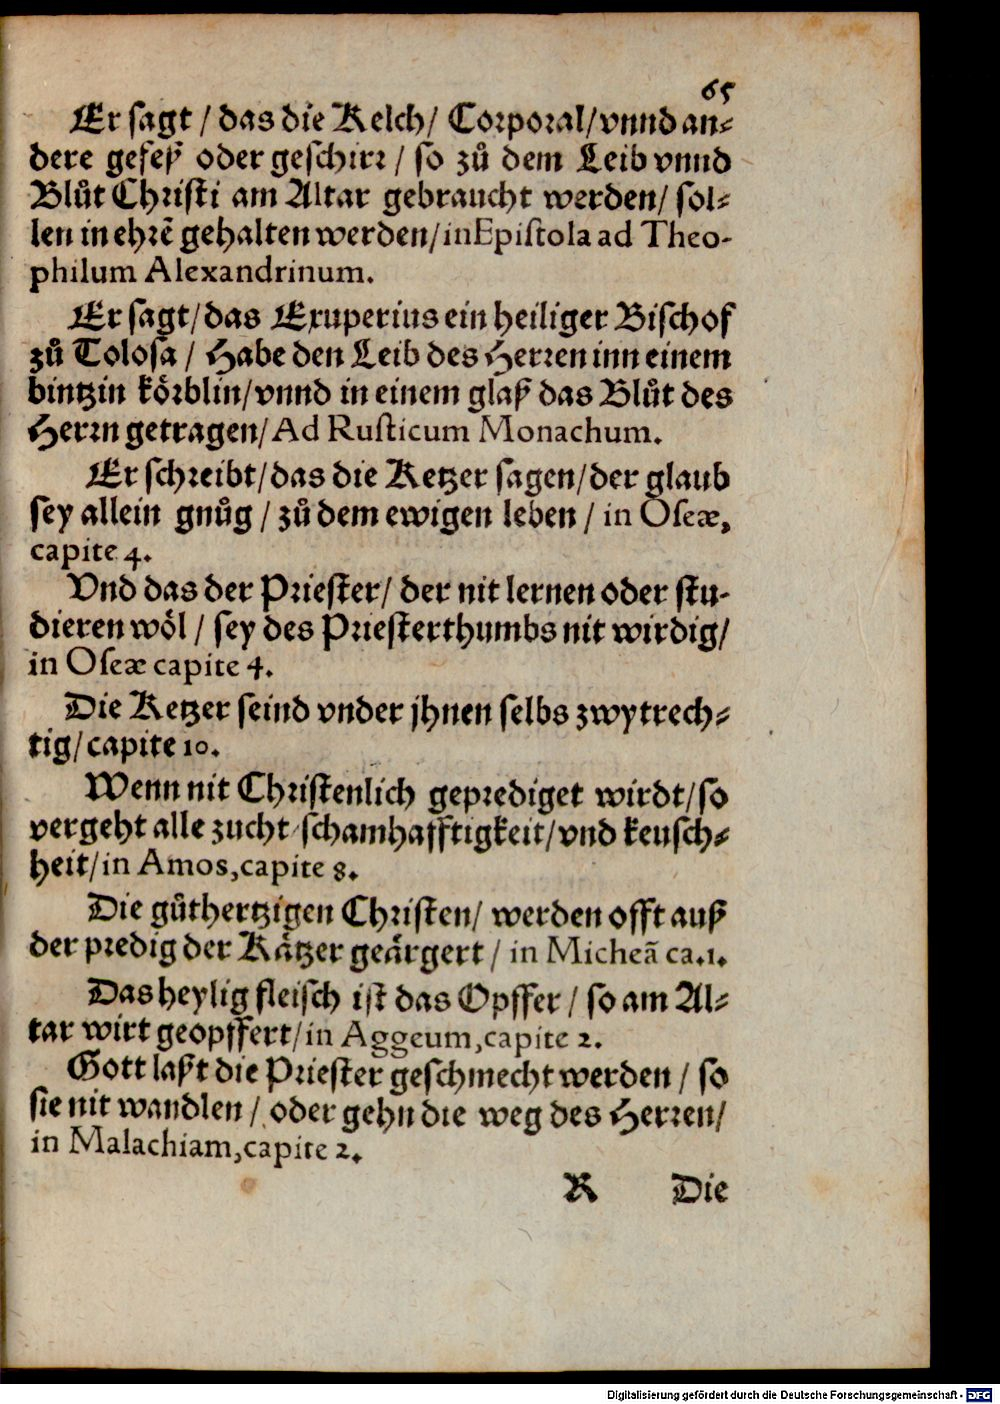 65
Er sagt / das die Kelch / Corporal / vnnd an⸗
dere gefeß oder geschirr / so zů dem Leib vnnd
Blůt Christi am Altar gebraucht werden / sol⸗
len in ehrẽ gehalten werden / in Epistola ad Theo-
philum Alexandrinum.
Er sagt / das Exuperius ein heiliger Bischof
zů Tolosa / Habe den Leib des Herren inn einem
bintzin kőrblin / vnnd in einem glaß das Blůt des
Herrn getragen / Ad Rusticum Monachum.
Er schreibt / das die Ketzer sagen / der glaub
sey allein gnůg / zů dem ewigen leben / in Oseæ,
capite 4.
Vnd das der Priester / der nit lernen oder stu-
dieren wől / sey des Priesterthumbs nit wirdig /
in Oseæ capite 4.
Die Ketzer seind vnder jhnen selbs zwytrech⸗
tig / capite 10.
Wenn nit Christenlich geprediget wirdt / so
vergeht alle zucht / schamhafftigkeit / vnd keusch⸗
heit / in Amos, capite 8.
Die gůthertzigen Christen / werden offt auß
der predig der Kätzer geärgert / in Micheã ca.1.
Das heylig fleisch ist das Opffer / so am Al⸗
tar wirt geopffert / in Aggeum, capite 2.
Gott laßt die Priester geschmecht werden / so
sie nit wandlen / oder gehn die weg des Herren /
in Malachiam, capite 2.
R Die
Digitalisierung gefördert durch die Deutsche Forschungsgemeinschaft - DFG